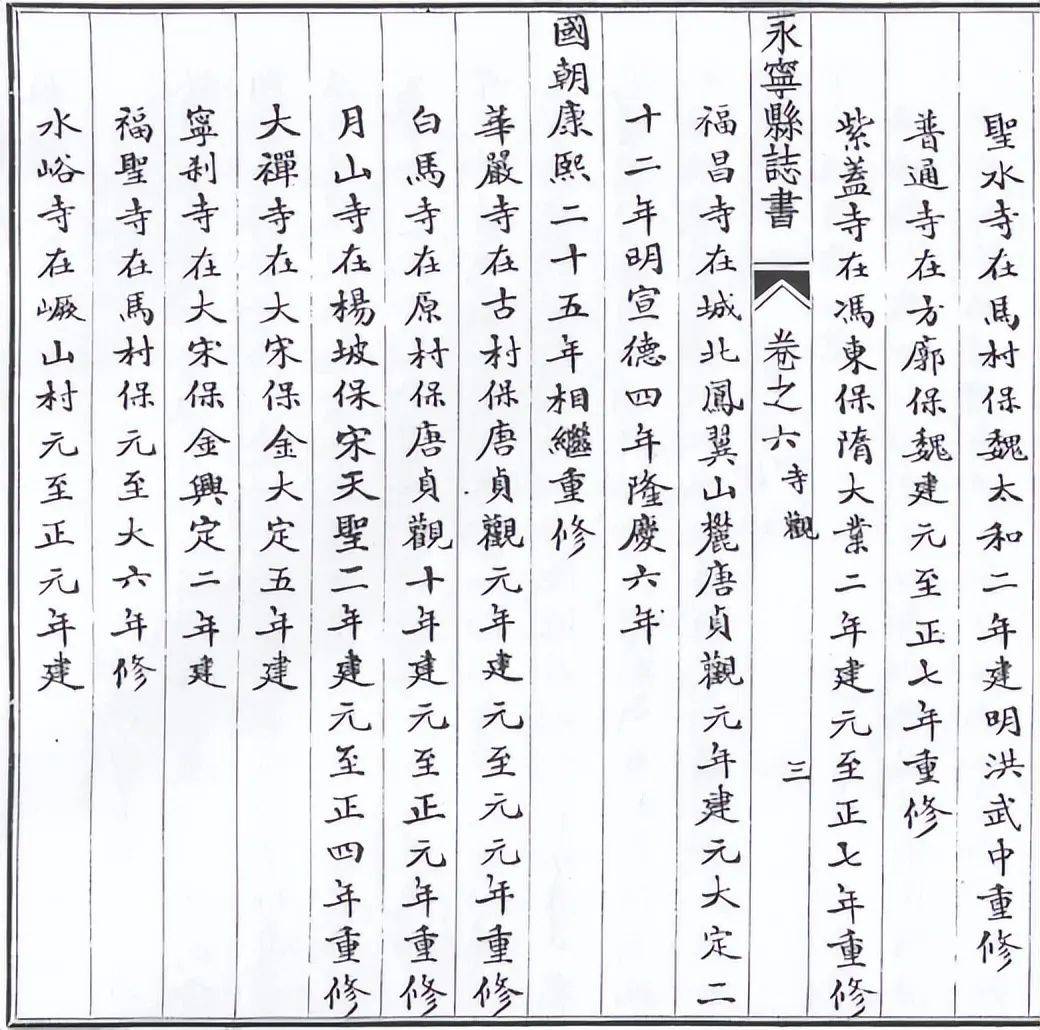 聖水寺在馬村保魏太和二年建明洪武中重修
普通寺在方廓保魏建元至正七年重修
紫蓋寺在馮東保隋大業二年建元至正七年重修
永寧縣誌書 卷之六 寺觀 三
福昌寺在城北鳳翼山麓唐貞觀元年建元大定二
十二年明宣德四年隆慶六年
國朝康熙二十五年相繼重修
華嚴寺在古村保唐貞觀元年建元至元元年重修
白馬寺在原村保唐貞觀十年建元至正元年重修
月山寺在楊坡保宋天聖二年建元至正四年重修
大禪寺在大宋保金大定五年建
寧刹寺在大宋保金興定二年建
福聖寺在馬村保元至大六年修
水峪寺在嶥山村元至正元年建